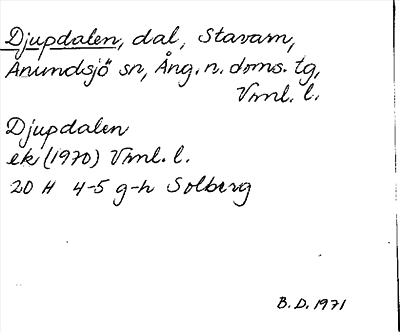 Djupdalen, dal, Stavarn,
Anundsjö sn, Ång. n. doms. tg,
Vrnl. l.
Djupdalen
ek (1970) Vrnl. l.
20 H 4-5 g-h Solberg
B.D. 1971